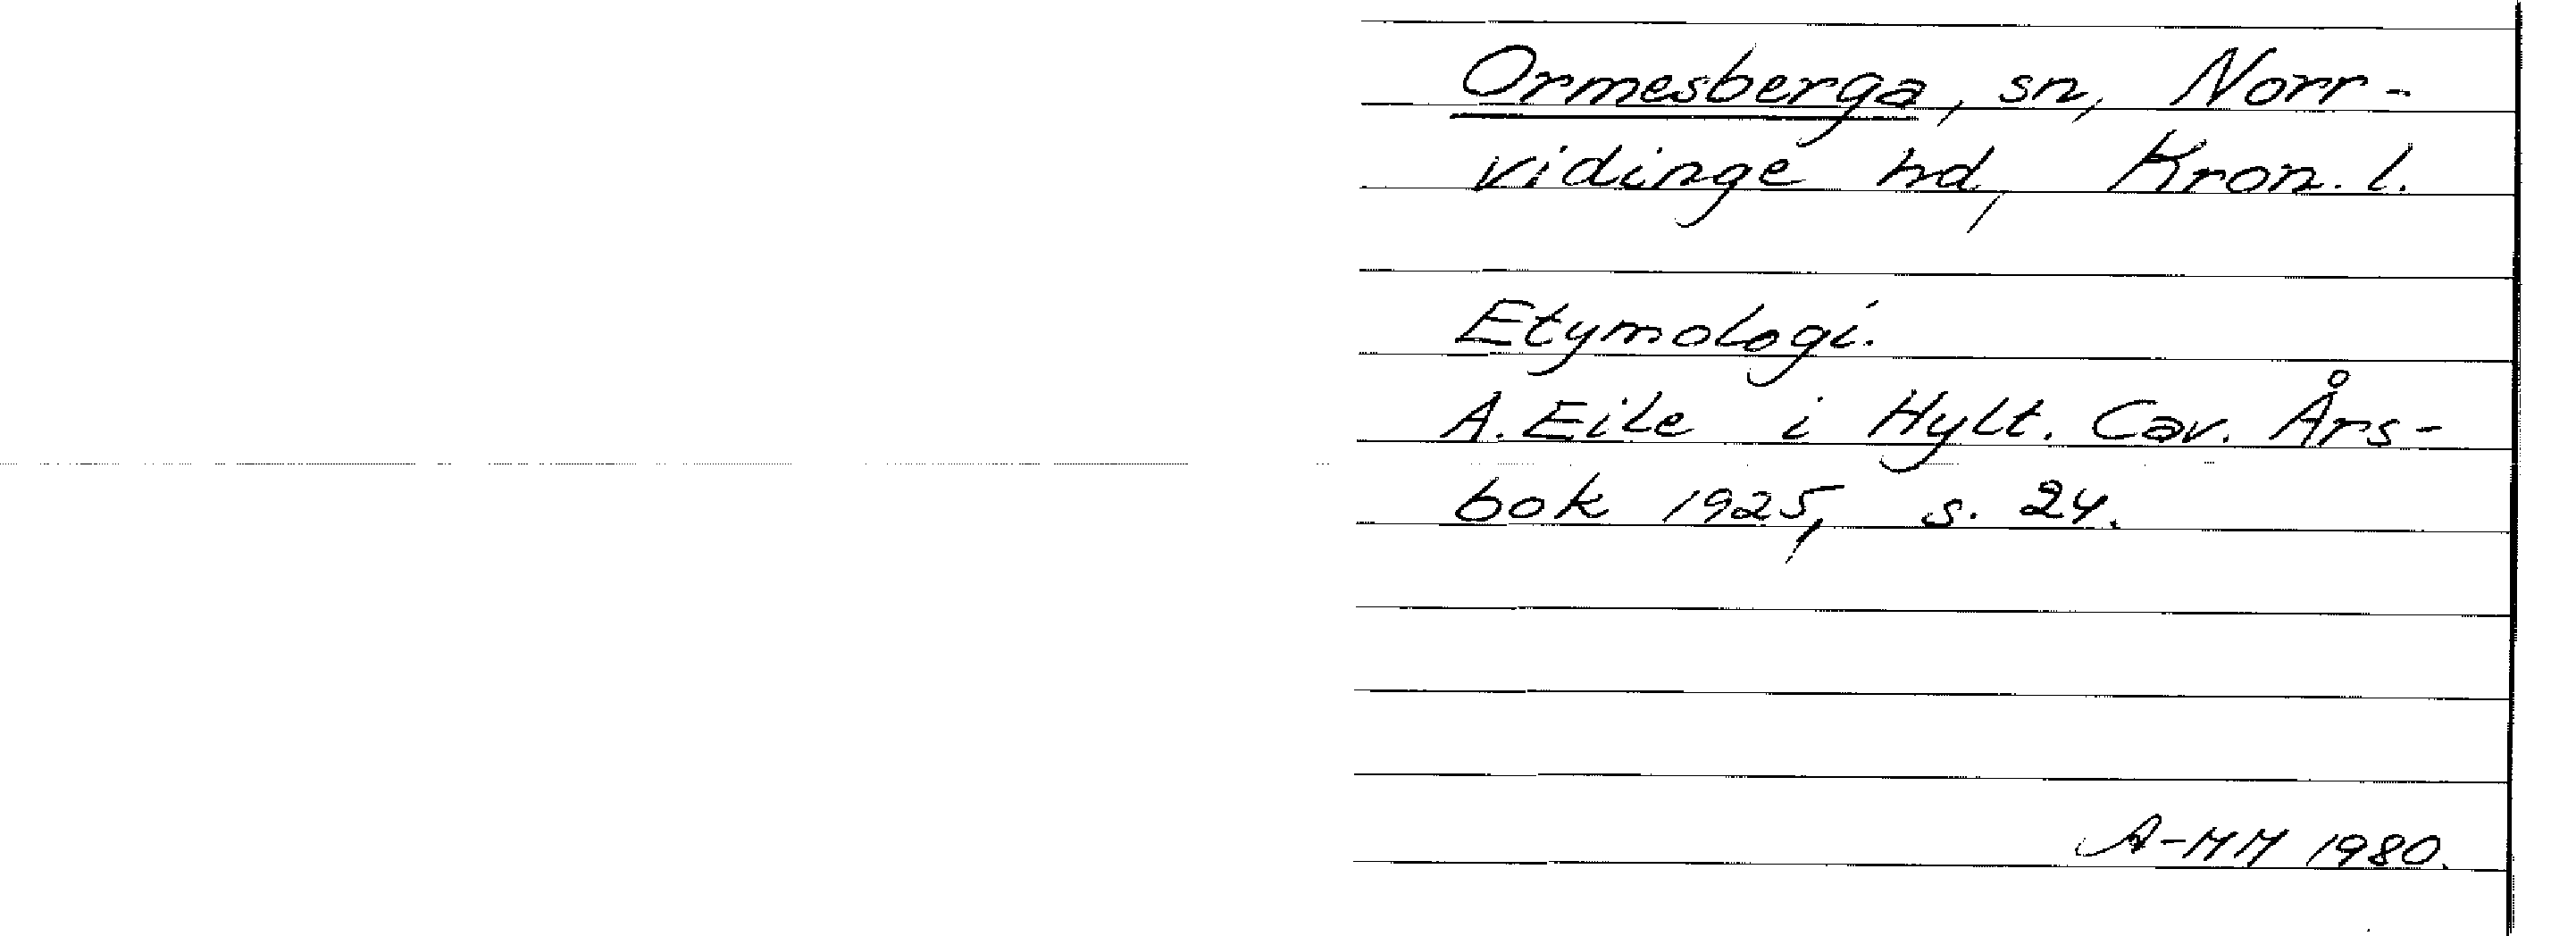 Ormesberga, sn, Norr-
vidinge hd, Kron. l.
Etymologi.
A. Eile i Hylt. Cav. Års-
bok 1925, s. 24.
A-MM 1980.